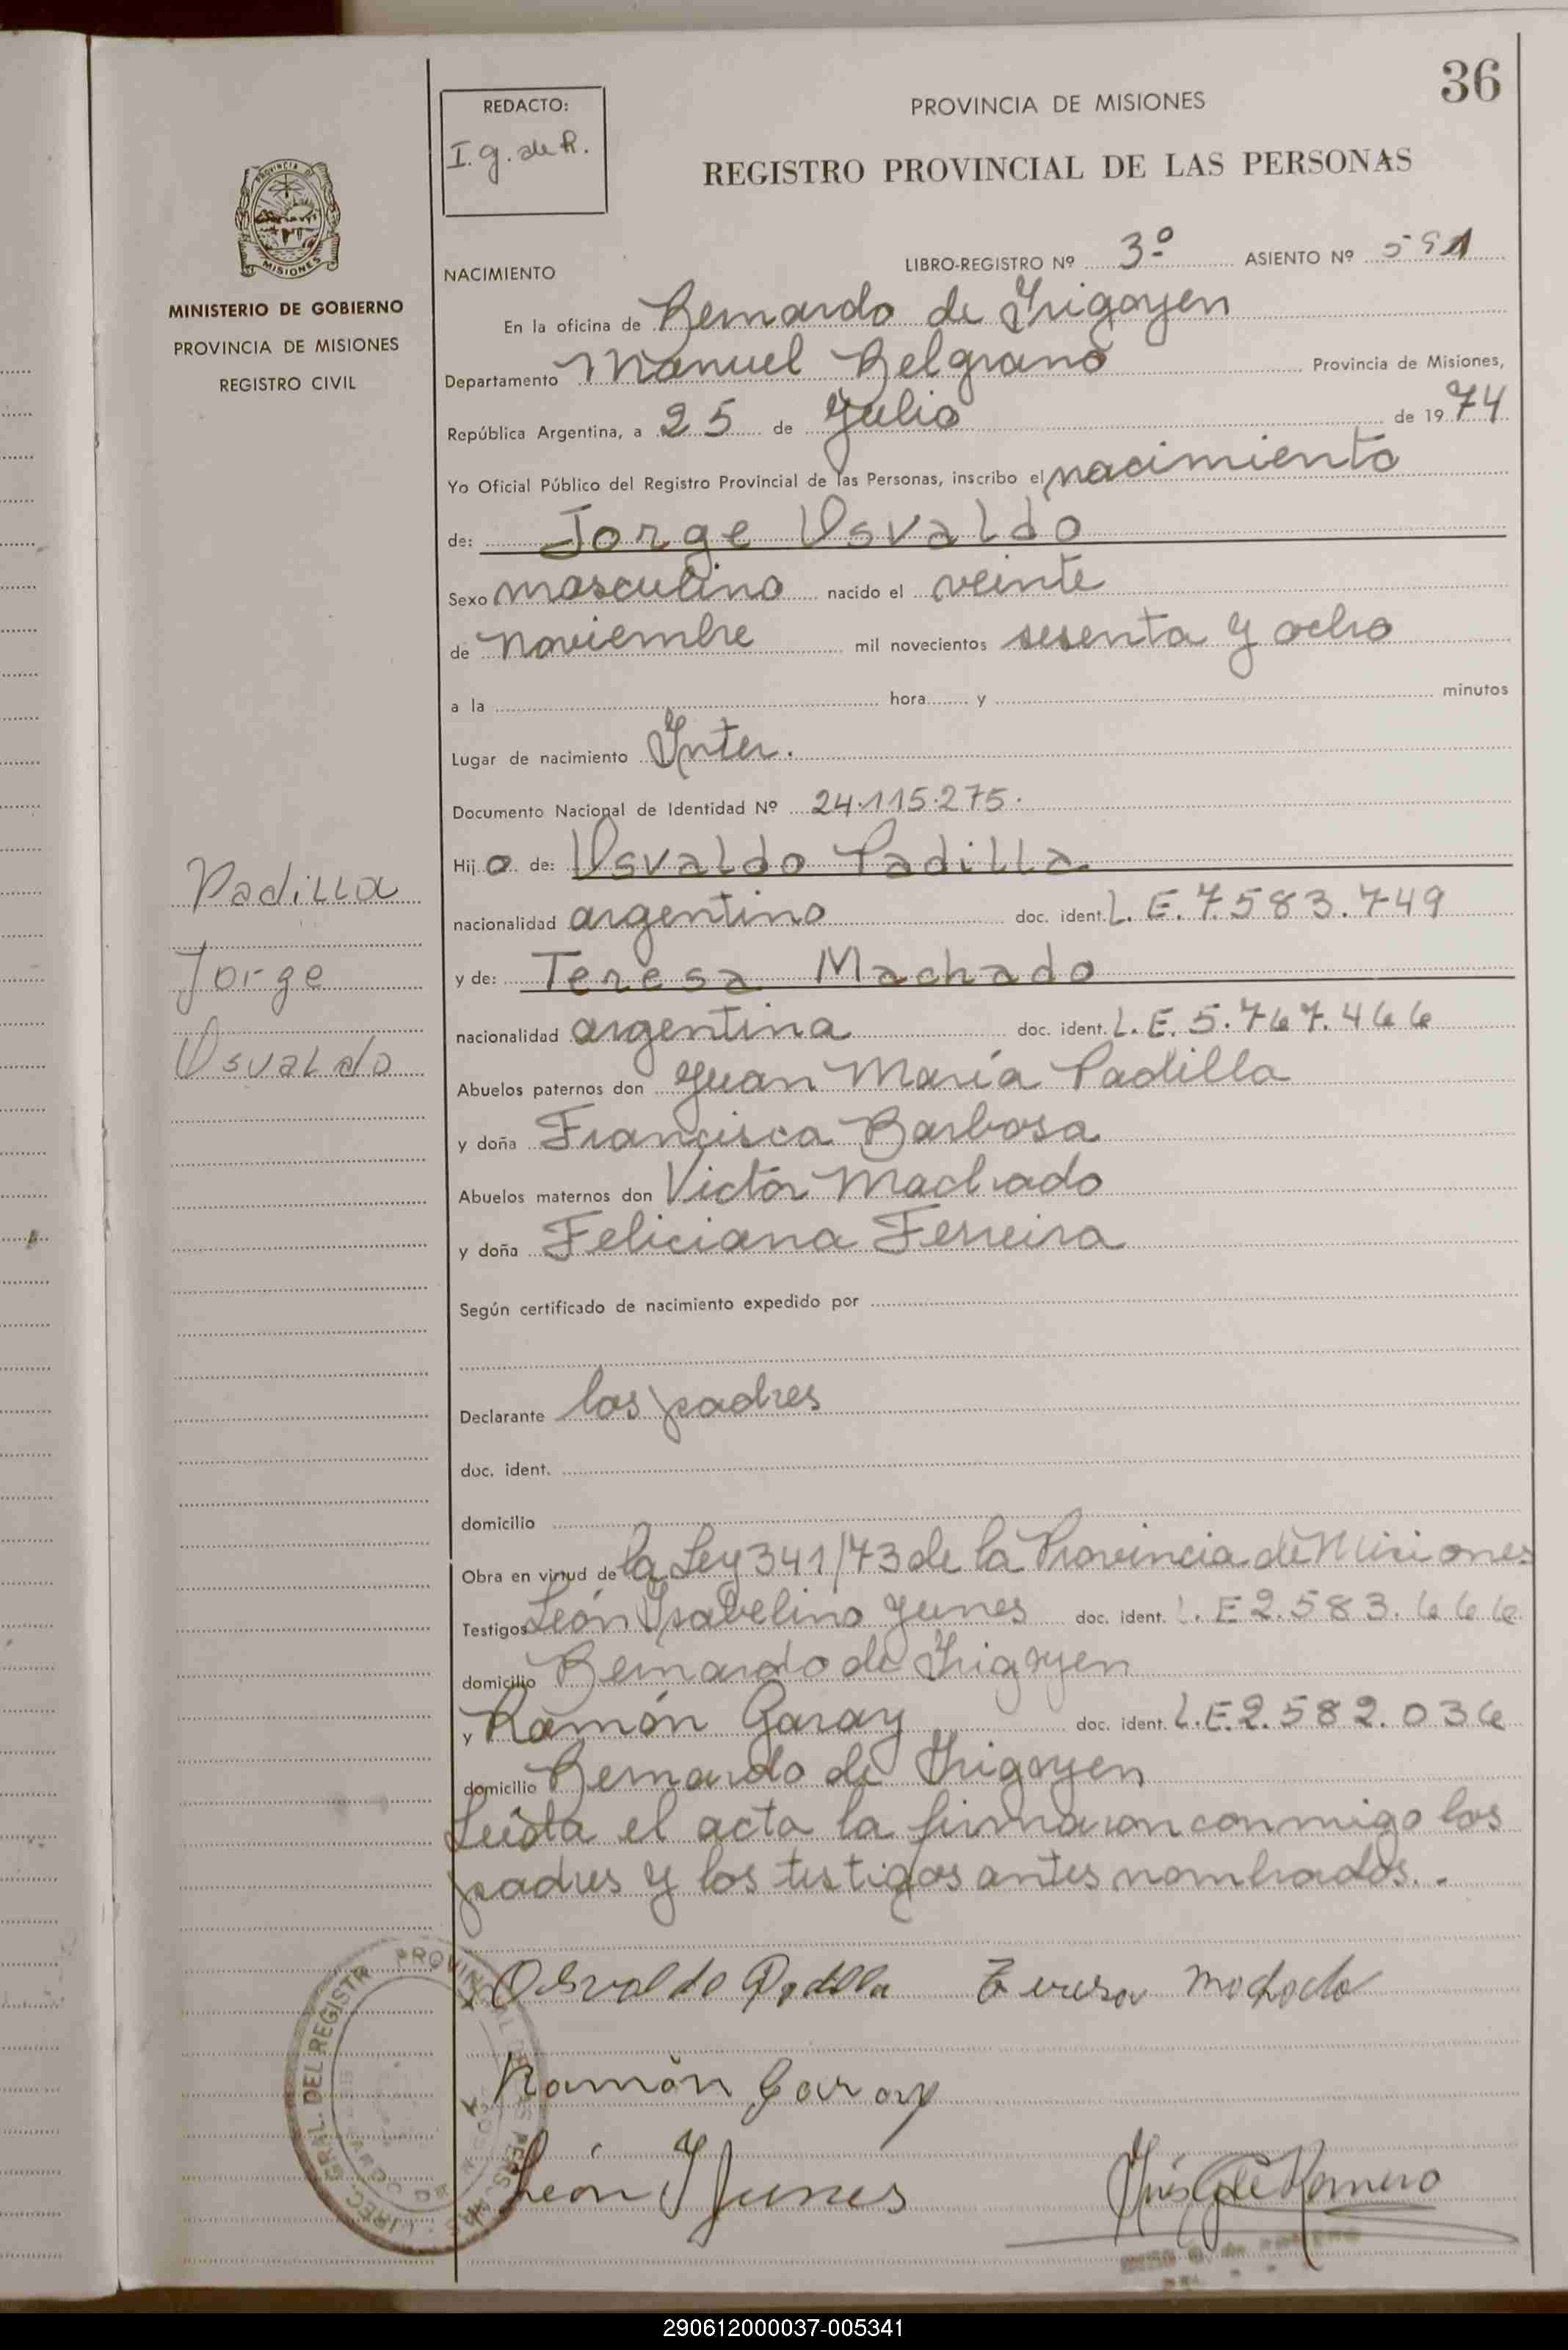 36
REDACTO:
I. g. de R.
PROVINCIA DE MISIONES
REGISTRO PROVINCIAL DE LAS PERSONAS
PROVINCIA DE MISIONES
MINISTERIO DE GOBIERNO
PROVINCIA DE MISIONES
REGISTRO CIVIL
NACIMIENTO
LIBRO-REGISTRO Nº 3º ASIENTO Nº 591
En la oficina de Bernardo de Irigoyen
Departamento Manuel Belgrano Provincia de Misiones,
República Argentina, a 25 de Julio de 1974
Yo Oficial Público del Registro Provincial de las Personas, inscribo el nacimiento
de: Jorge Osvaldo
Sexo masculino nacido el veinte
de noviembre mil novecientos sesenta y ocho
a la hora y minutos
Lugar de nacimiento Inter.
Documento Nacional de Identidad Nº 24.115.275.
Hijo de: Osvaldo Padilla
nacionalidad argentino doc. ident. L. E. 7.583.749
y de: Teresa Machado
nacionalidad argentina doc. ident. L. E. 5.767.466
Abuelos paternos don Juan María Padilla
y doña Francisca Barbosa
Abuelos maternos don Victor Machado
y doña Feliciana Ferreira
Según certificado de nacimiento expedido por
Declarante los padres
doc. ident.
domicilio
Obra en virtud de la Ley 341/73 de la Provincia de Misiones
Testigos León Isabelino Junes doc. ident. L. E 2.583.666
domicilio Bernardo de Irigoyen
y Ramón Garay doc. ident. L.E.2.582.036
domicilio Bernardo de Irigoyen
Leida el acta la firmaron conmigo los
padres y los testigos antes nombrados..
Padilla
Jorge
Osvaldo
Osvaldo Padilla Teresa Machado
Ramón Garay
León I Junes
Inés G de Romero
DIREC. GRAL. DEL REGISTR PROVINCIAL DE LAS PERSONAS
290612000037-005341